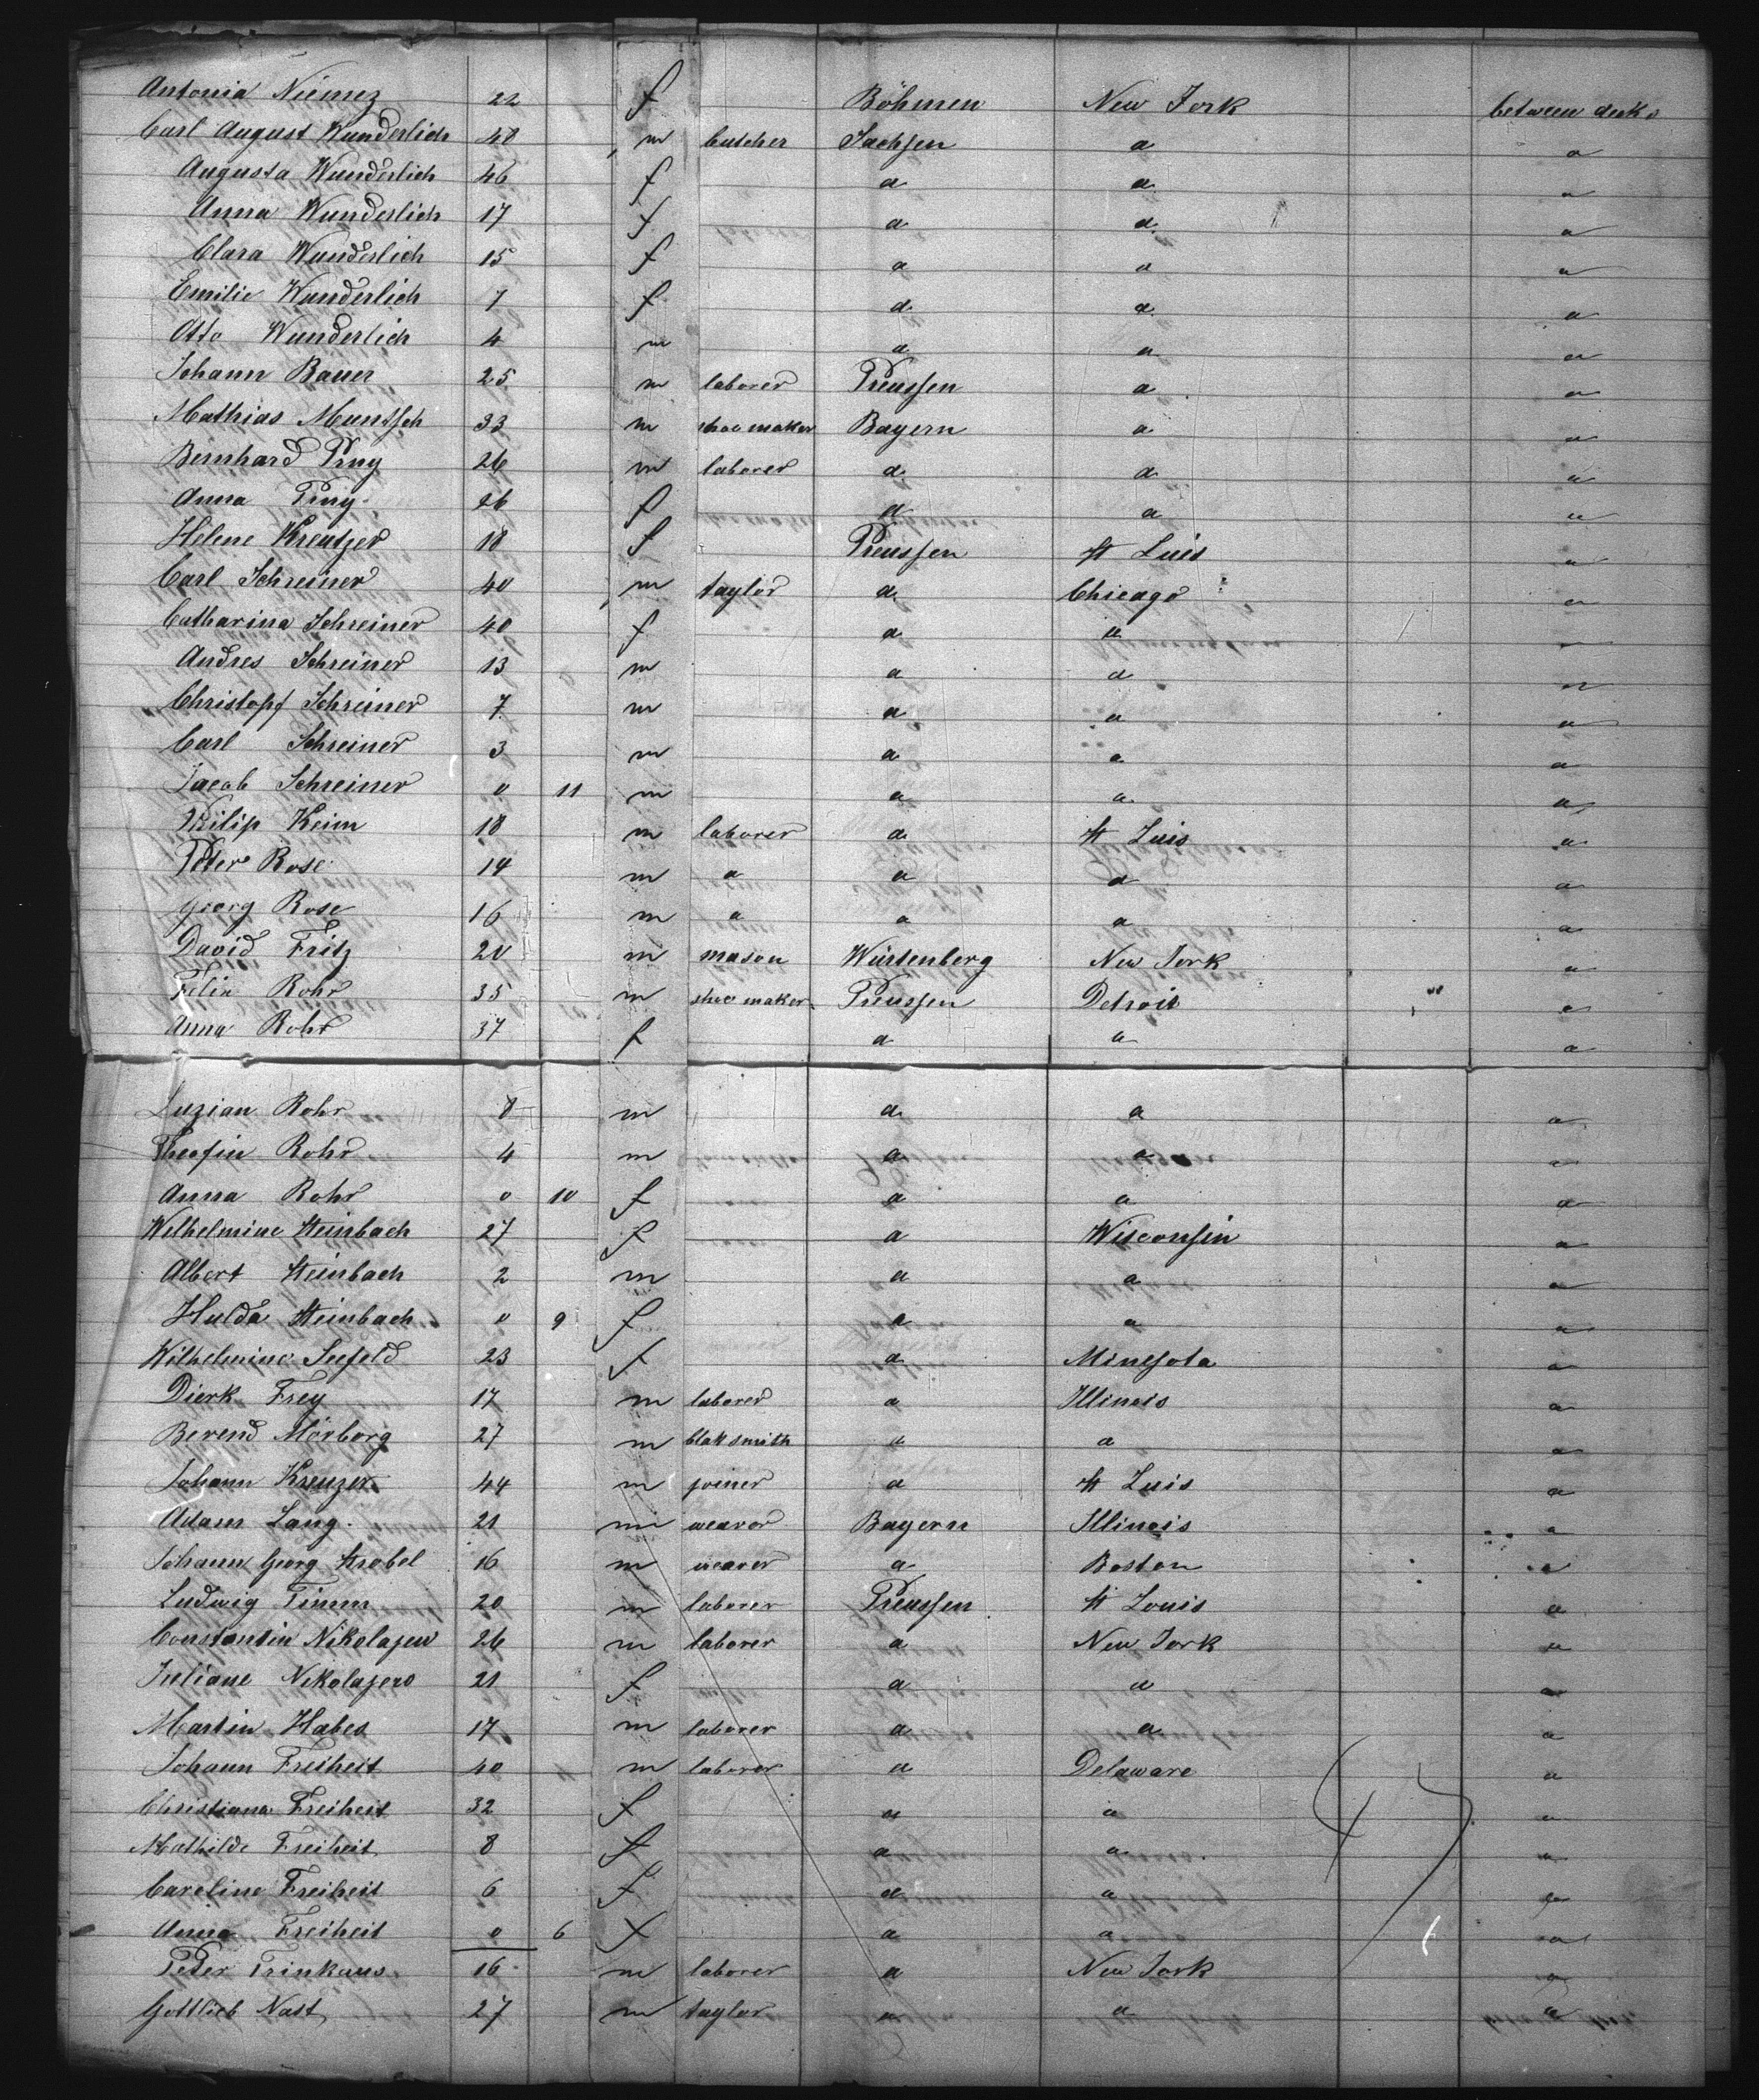 Antonia Niemez 22 f Böhmen New York between decks
Carl August Wunderlich 48 m butcher Sachsen a a
Augusta Wunderlich 46 f a a a
Anna Wunderlich 17 f a a a
Clara Wunderlich 15 f a a a
Emilie Wunderlich 7 f a a a
Otto Wunderlich 4 m a a a
Johann Bauer 25 m laborer Preussen a a
Mathias Muntsch 33 m shoe maker Bayern a a
Bernhard 26 m laborer a a a
Anna 26 f a a a
Helene Kreutzer 18 f Preussen St Luis a
Carl Schreiner 40 m taylor a Chicago a
Catharina Schreiner 40 f a a a
Andres Schreiner 13 m a a a
Christopf Schreiner 7 m a a a
Carl Schreiner 3 m a a a
Jacob Schreiner 0 11 m a a a
Philip Keim 18 m laborer a St Luis a
Peter Rose 14 m a a a a
Georg Rose 16 m a a a a
David Fritz 20 m mason Würtenberg New York a
Felix Rohr 35 m shoe maker Preussen Detroit a
Anna Rohr 37 f a a a
Luzian Rohr 8 m a a a
Theofin Rohr 4 m a a a
Anna Rohr 0 10 f a a a
Wilhelmine Steinbach 27 f a Wisconsin a
Albert Steinbach 2 m a a a
Hulda Steinbach 0 9 f a a a
Wilhelmine Seefeld 23 f a Minesota a
Dierk Frey 17 m laborer a Illinois a
Berend Mörborg 27 m blaksmith a a a
Johann Kreuzer 44 m joiner a St Luis a
Adam Lang 21 m weavor Bayern Illinois a
Johann Georg Strobel 16 m weaver a Boston a
Ludwig Timm 20 m laborer Preussen St Louis a
Constantin Nikolajew 26 m laborer a New York a
Juliane Nikolajew 21 f a a a
Martin Habes 17 m laborer a a a
Johann Freiheit 40 m laborer a Delaware a
Christiana Freiheit 32 f a a a
Mathilde Freiheit 8 f a a a
Careline Freiheit 6 f a a a
Anna Freiheit 0 6 f a a a
Peter Trinkaus 16 m laborer a New York a
Gottlieb Nast 27 m taylor a a a